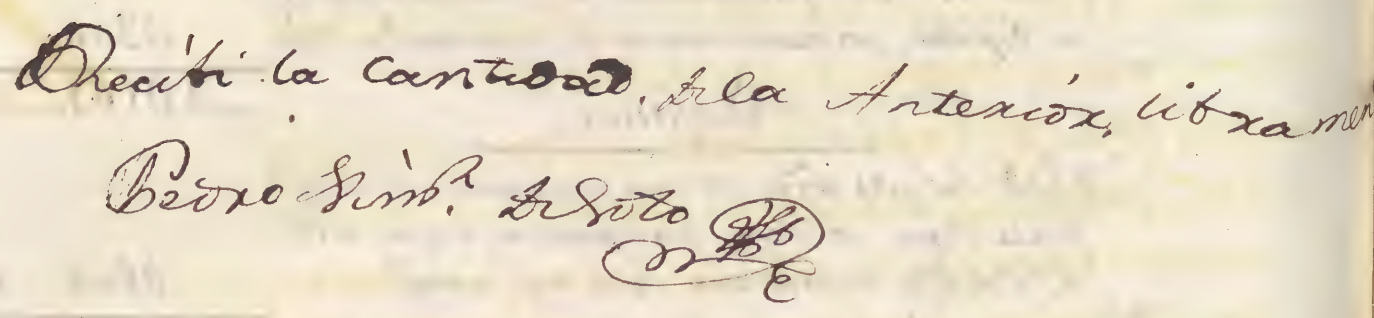 Recibi la Cantidad, dela Anterior, libramen
Pedro de Soto